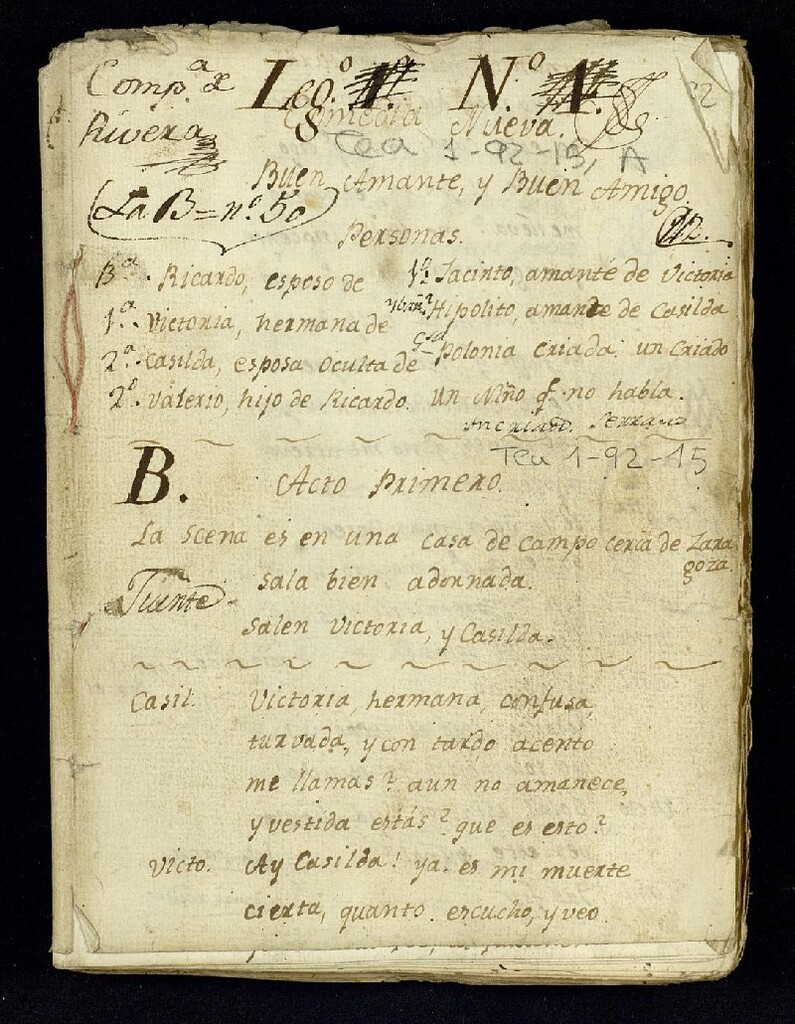 Comp.ª de
Rivera
Leg.º 1. N.º
22
Comedia Nueva.
Tea 1-92-15, A
Buen Amante, y Buen Amigo.
La B = nº 50
Personas.
B.ª Ricardo, esposo de
1.ª Victoria, hermana de
2.ª Casilda, esposa oculta de
2.º Valerio, hijo de Ricardo.
1.º Jacinto, amante de Victoria
Hipolito, amante de Casilda
Polonia criada. un Criado
un Niño q.e no habla.
un criado. Serrano
Tea 1-92-15
B. Acto Primero.
La Scena es en una casa de campo cerca de Zara
goza.
sala bien adornada.
salen Victoria, y Casilda.
Casil. Victoria, hermana, confusa,
turvada, y con tardo acento
me llamas? aun no amanece,
y vestida estás? que es esto?
Victo. Ay Casilda! ya es mi muerte
cierta, quanto escucho, y veo